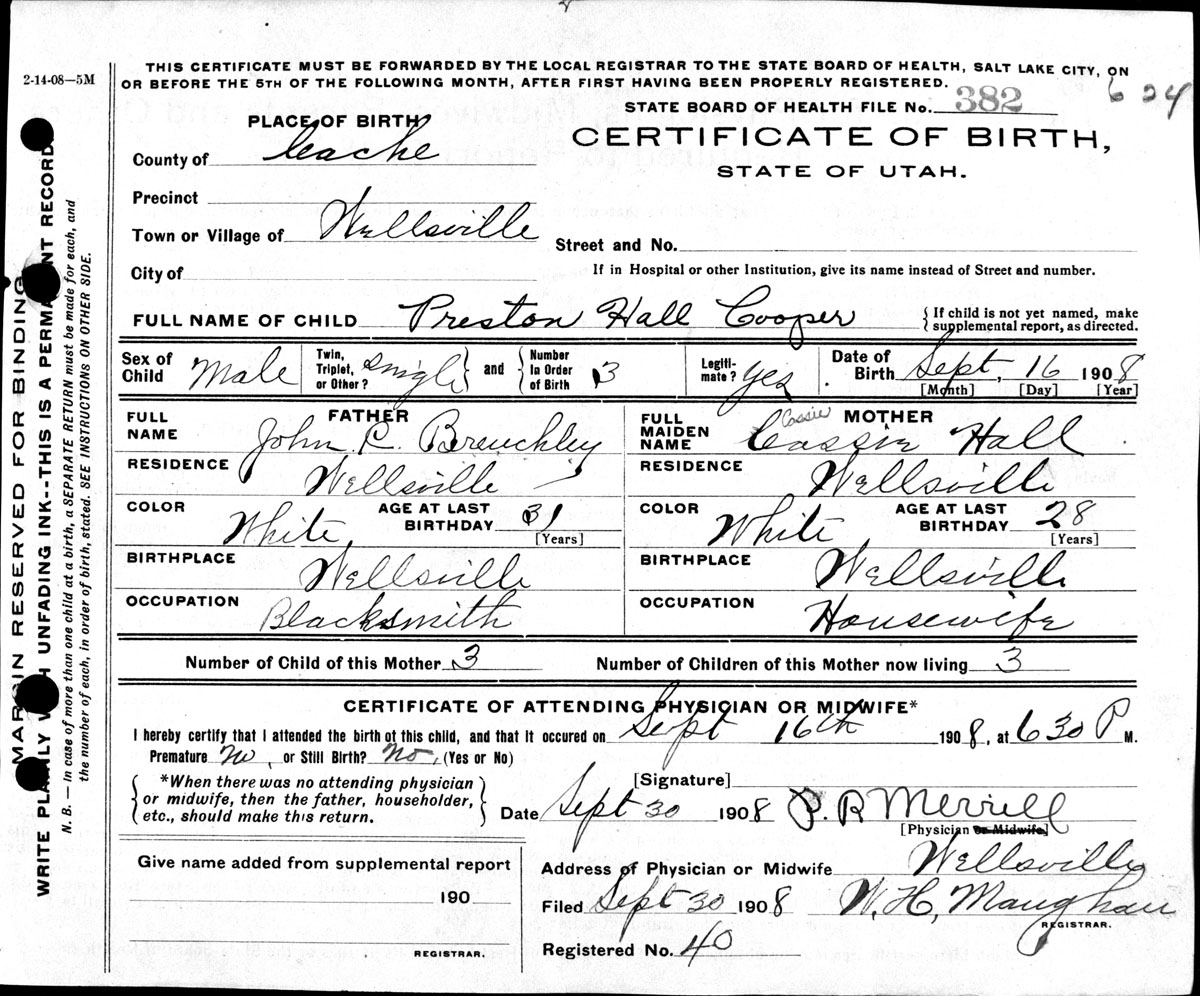 2-14-08—5M
THIS CERTIFICATE MUST BE FORWARDED BY THE LOCAL REGISTRAR TO THE STATE BOARD OF HEALTH, SALT LAKE CITY, ON
OR BEFORE THE 5TH OF THE FOLLOWING MONTH, AFTER FIRST HAVING BEEN PROPERLY REGISTERED.
624
STATE BOARD OF HEALTH FILE No. 382
PLACE OF BIRTH
CERTIFICATE OF BIRTH,
STATE OF UTAH.
County of Cache
Precinct
Town or Village of Wellsville
Street and No.
City of
If in Hospital or other Institution, give its name instead of Street and number.
FULL NAME OF CHILD Preston Hall Cooper
{ If child is not yet named, make
supplemental report, as directed.
Sex of Child Male
Twin, Triplet, or Other? Single } and { Number In Order of Birth 3
Legiti-mate? yes.
Date of Birth Sept, 16 1908
[Month] [Day] [Year]
FATHER
FULL NAME John C. Breuchley
RESIDENCE Wellsville
COLOR White
AGE AT LAST BIRTHDAY 31
[Years]
BIRTHPLACE Wellsville
OCCUPATION Blacksmith
MOTHER
Cassie
FULL MAIDEN NAME Cassie Hall
RESIDENCE Wellsville
COLOR White
AGE AT LAST BIRTHDAY 28
[Years]
BIRTHPLACE Wellsville
OCCUPATION Housewife
Number of Child of this Mother 3
Number of Children of this Mother now living 3
CERTIFICATE OF ATTENDING PHYSICIAN OR MIDWIFE*
I hereby certify that I attended the birth of this child, and that it occured on Sept 16th 1908, at 630 P M.
Premature No, or Still Birth? No, (Yes or No)
{ *When there was no attending physician
or midwife, then the father, householder,
etc., should make this return. }
[Signature]
Date Sept 30 1908 P. R Merrill
[Physician or Midwife]
Give name added from supplemental report
190
REGISTRAR.
Address of Physician or Midwife Wellsville
Filed Sept 30 1908 W. H. Maughan
REGISTRAR.
Registered No. 40
MARGIN RESERVED FOR BINDING
WRITE PLAINLY WITH UNFADING INK--THIS IS A PERMANENT RECORD
N. B. — In case of more than one child at a birth, a SEPARATE RETURN must be made for each, and
the number of each, in order of birth, stated. SEE INSTRUCTIONS ON OTHER SIDE.